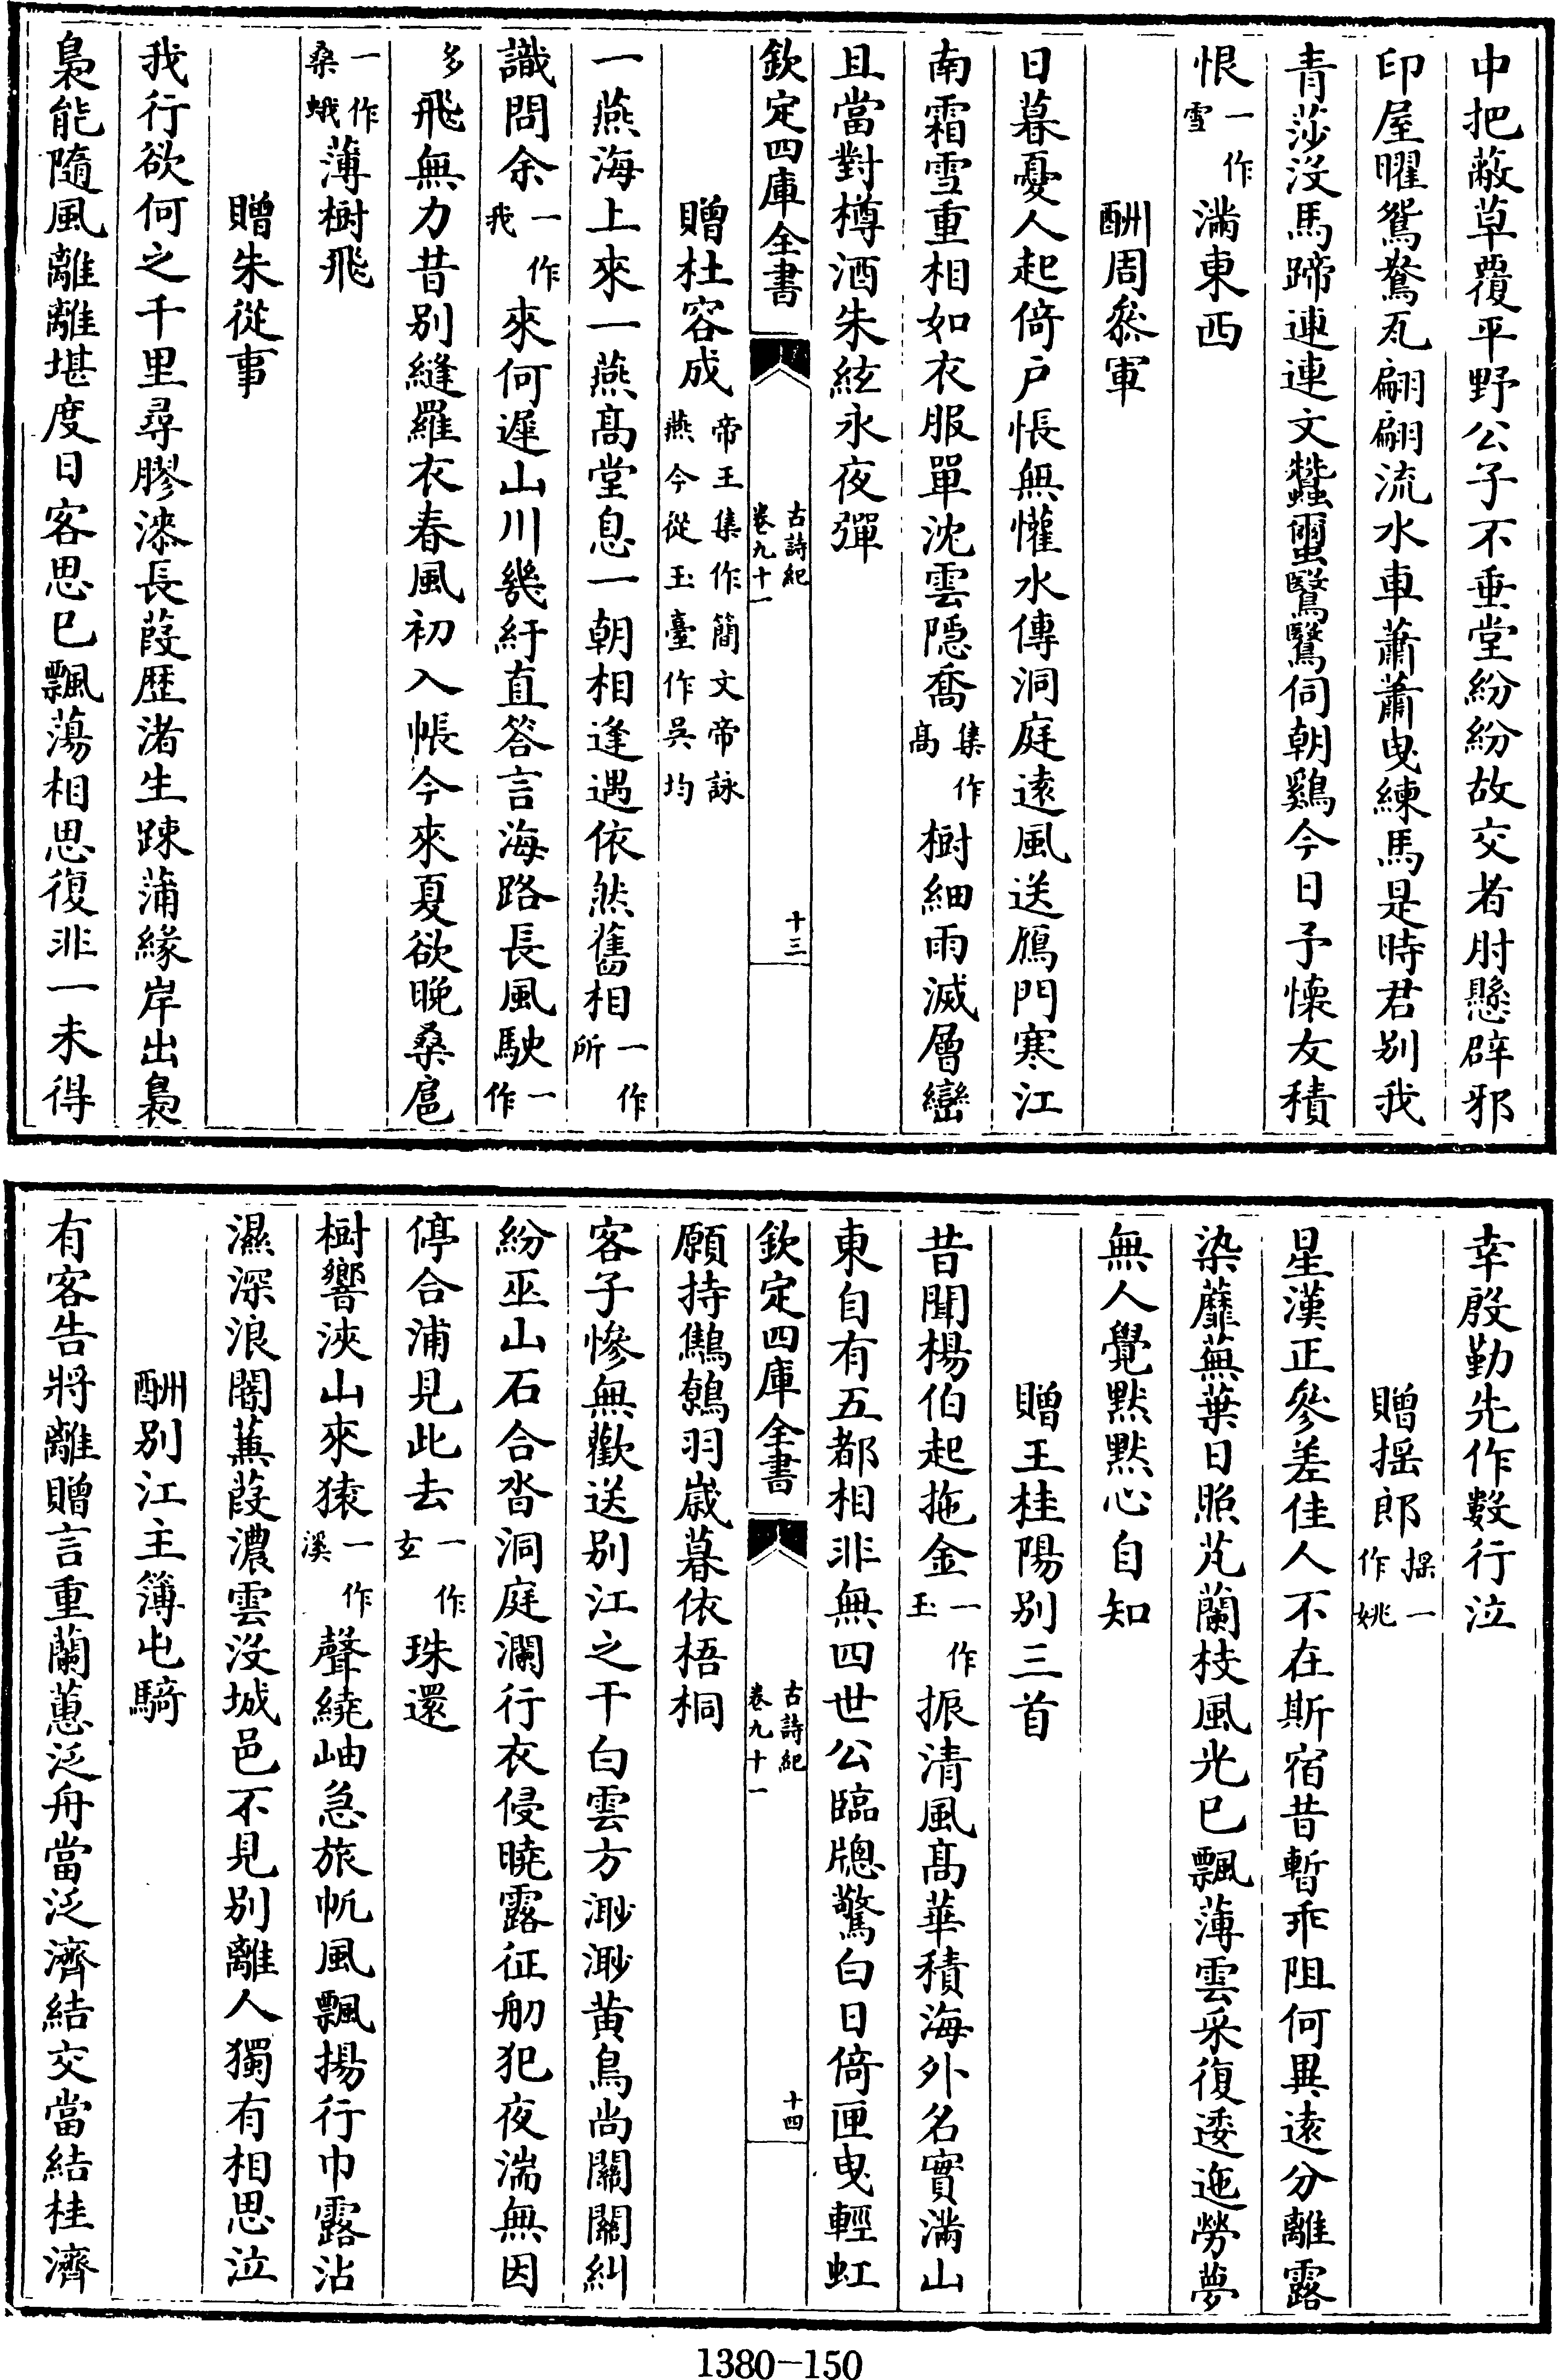 中把蔽草覆平野公子不垂堂紛紛故交者肘懸辟邪
印屋曜鴛鴦瓦翩翩流水車蕭蕭曳練馬是時君别我
青莎没馬蹄連連文蠶蠒鷖鷖伺朝鷄今日予懐友積
恨一作雪滿東西
酬周叅軍
日暮憂人起倚户悵無懽水傳洞庭逺風送鴈門寒江
南霜雪重相如衣服單沈雲隠喬集作髙樹細雨滅層巒
且當對樽酒朱絃永夜彈
欽定四庫全書
古詩紀
卷九十一
十三
贈杜容成帝王集作簡文帝詠燕今從玉臺作吳均
一燕海上來一燕髙堂息一朝相逢遇依然舊相一作所
識問余一作我來何遲山川幾紆直答言海路長風駛一作
多飛無力昔别縫羅衣春風初入帳今來夏欲晚桑扈
一作桑蛾薄樹飛
贈朱從事
我行欲何之千里尋膠漆長葭歴渚生踈蒲縁岸出裊
裊能隨風離離堪度日客思已飄蕩相思復非一未得
幸殷勤先作數行泣
贈揺郎揺一作姚
星漢正參差佳人不在斯宿昔暫乖阻何異逺分離露
染蘼蕪葉日照芃蘭枝風光已飄薄雲采復逶迤勞夢
無人覺黙黙心自知
贈王桂陽别三首
昔聞楊伯起拖金一作玉振清風髙華積海外名實滿山
東自有五都相非無四世公臨牕驚白日倚匣曳輕虹
欽定四庫全書
古詩紀
卷九十一
十四
願持鷦鷯羽嵗暮依梧桐
客子慘無歡送别江之干白雲方渺渺黄鳥尚關關糾
紛巫山石合沓洞庭瀾行衣侵曉露征舠犯夜湍無因
停合浦見此去一作玄珠還
樹響浹山來猿一作溪聲繞岫急旅帆風飄揚行巾露沾
濕深浪闇蒹葭濃雲没城邑不見别離人獨有相思泣
酬别江主簿屯騎
有客告將離贈言重蘭蕙泛舟當泛濟結交當結桂濟
1380-150